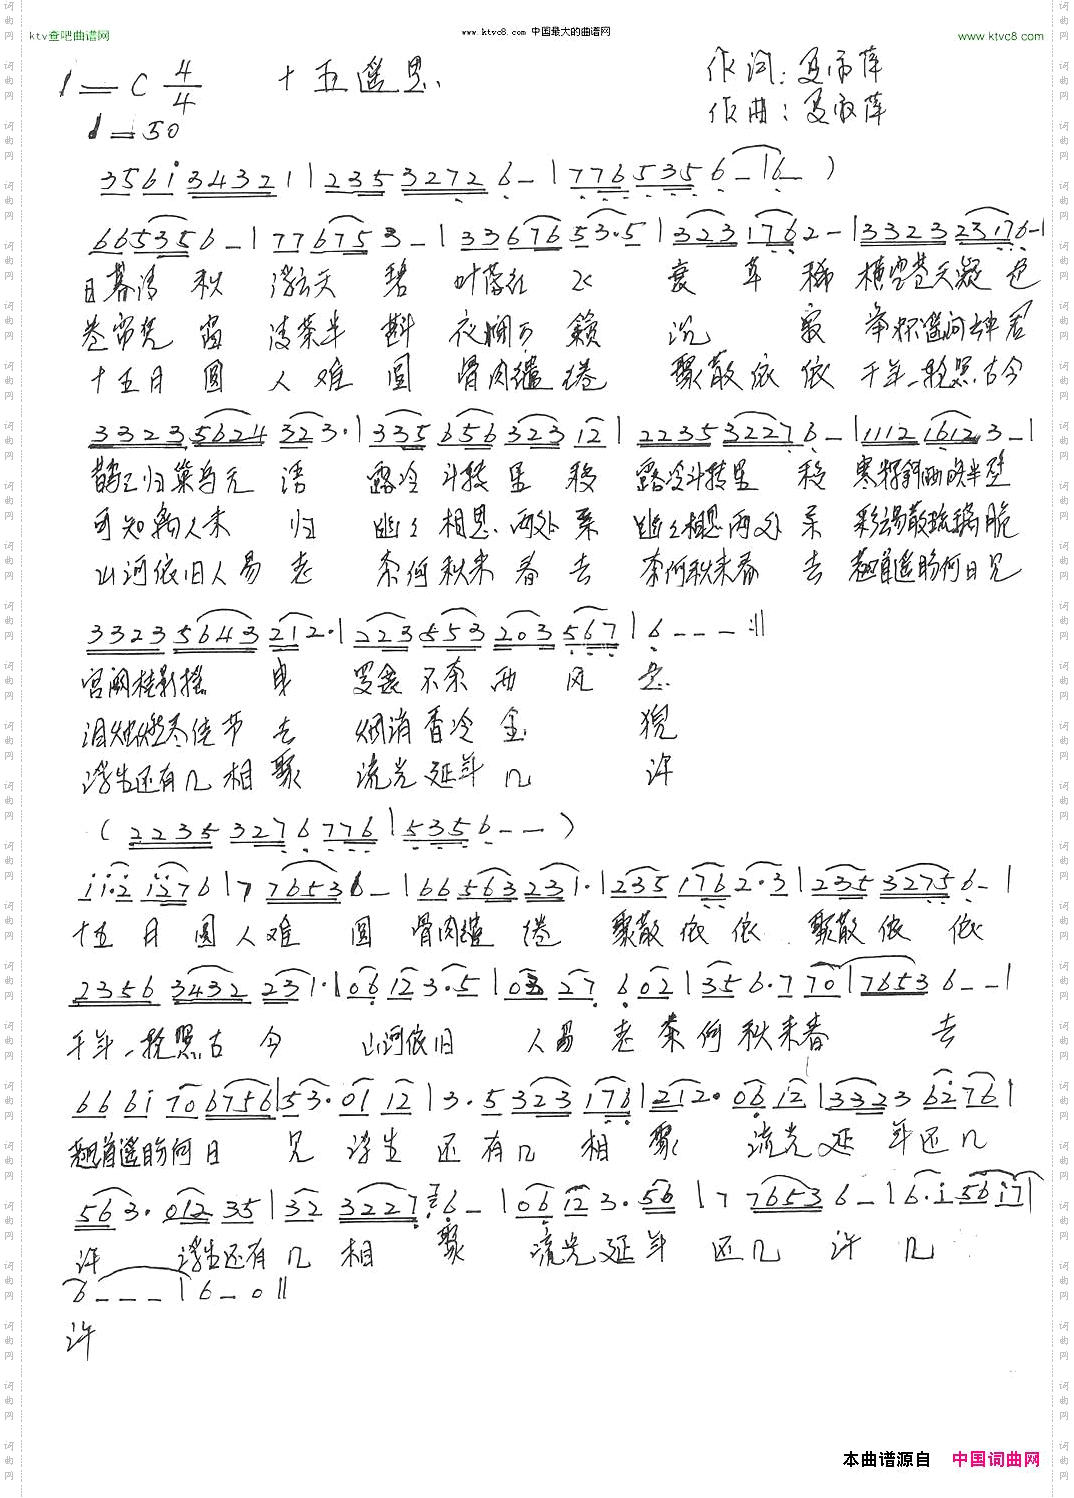 ktv查吧曲谱网
www.ktvc8.com 中国最大的曲谱网
www.ktvc8.com
1=C 4/4
十五遥思
作词:夏
作曲:夏
♩=50
3561 343211|235 3272 6-|776 535 6-|6-)
665356-|77675 3-|33676 53·5|3231762-|3323 23176-|
日暮清秋 浮云天 碧 叶落红 水 衰 草 稀 横空苍天凝色
卷帘凭窗 清茶半斟 衣阑万籁 沉 寂 举杯遥问
十五月圆 人难圆 骨肉缱绻 聚散依依 千年一轮照古今
3323 5624 323·|335 656 323 12|2235 3227 6-|1112 1612 3-|
鹊已归巢与无语 露冷斗转星移 露冷斗转星 移 寒
可知离人未 归 幽幽相思两处系 幽幽相思两处系 彩云易散琉璃脆
山河依旧人易老 奈何秋来春去 奈何秋来春 去 翘首遥盼何日见
3323 5643 212·|223 553 203 567|6---:||
宫阙桂影摇曳 罗衾不奈西风
泪烛燃尽佳节去 烟消香冷金 猊
浮生还有几相聚 流光延年几 许
(2235 3276 776|5356--)
十五月圆人难 圆 骨肉缱绻 聚散依依 聚散依 依
2356 3432 231·|06 123·5|03 27 602|356·7 70|76536--|
千年一轮照古今 山河依旧 人易老奈何秋来春 去
66 61 70 6756|53·01 12|3·5 323 176|212·06 12|3323 6276|
翘首遥盼何日 见 浮生还有几相 聚 流光延年还几
563·012 35|32 3227 6-|06 123·56|77653 6-|6·1 5617|
许 浮生还有几相 聚 流光延年 还几 许 几
6---|6-0||
许
本曲谱源自 中国词曲网
词曲网